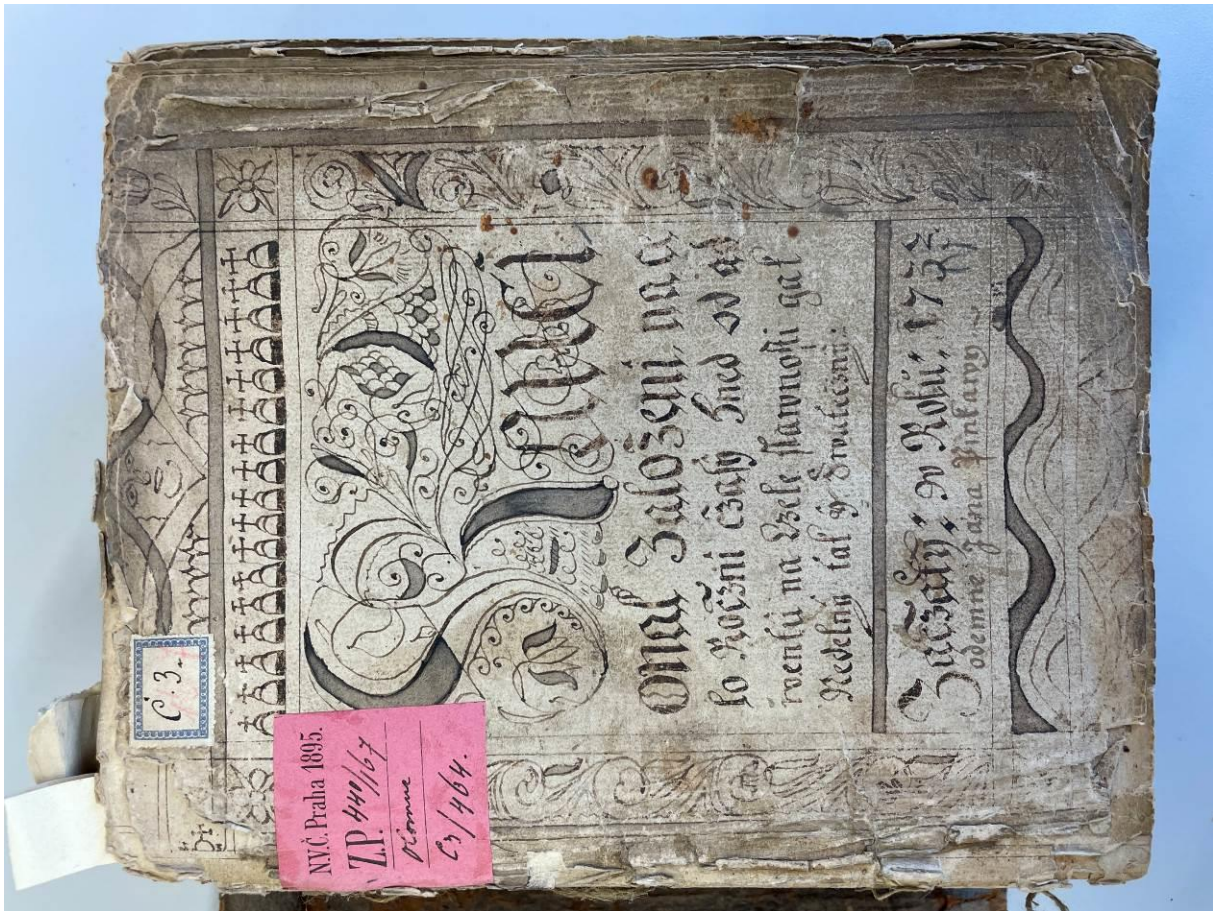 Č. 3.
N.V.Č. Praha 1895.
Z.P. 441/167
C3/464.
Kanci
Onal Založeni, na ce
lo Roczni czasy hned od ad
wentu na slawnosti gak
Nedelni tak y Swatečni:
Začzaty: w Roku:
odemne Jana Pinkawy ~